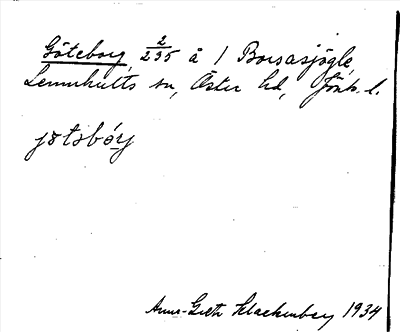 Göteborg, 2/235 å 1 Borsasjögle,
Lemnhults sn, Öster hd, Jönk. l.
jötsbórj
Anna-Greta Klackenberg 1934